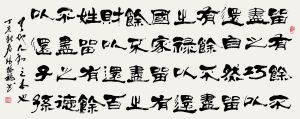 留有餘不
盡之巧以
還自然留
有餘不盡
之祿以還
國家留有
餘不盡之
財以還百
姓留有餘
不盡之德
以還子孫